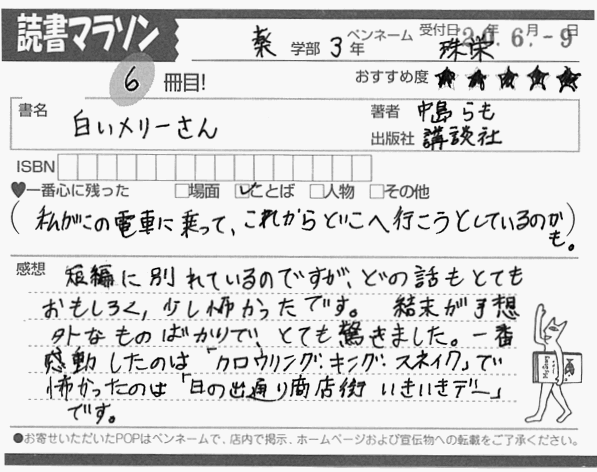 読書マラソン
薬 学部 3 年 ペンネーム 珠栄 受付日 20.6.-9 年 月 日
6 冊目! おすすめ度 ★★★★★
書名 白いメリーさん
著者 中島らも
出版社 講談社
ISBN
♥一番心に残った □場面 ☑ことば □人物 □その他
(私がこの電車に乗って、これからどこへ行こうとしているのかも。
感想 短編に別れているのですが、どの話もとても
おもしろく、少し怖かったです。 結末が予想
外なものばかりで、とても驚きました。一番
感動したのは「クロウリング・キング・スネイク」で
怖かったのは「日の出通り商店街 いきいきデー」
です。
●お寄せいただいたPOPはペンネームで、店内で掲示、ホームページおよび宣伝物への転載をご了承ください。